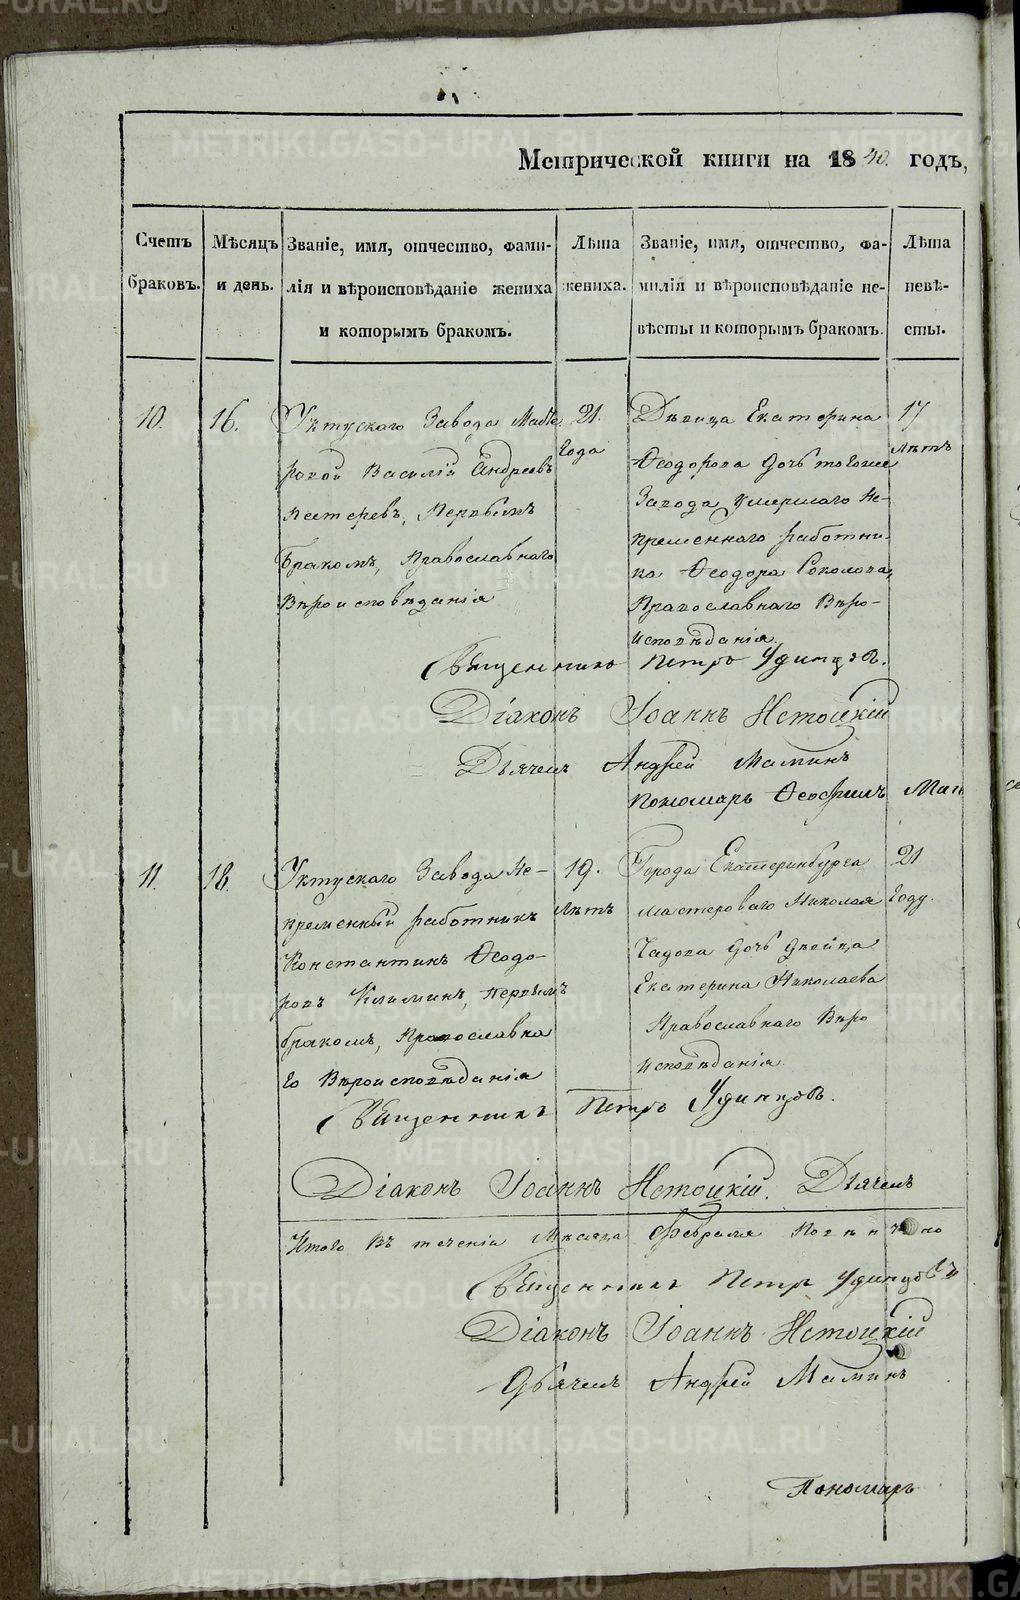 Метрической книги на 1840. годъ,
Счетъ браковъ.
Мѣсяцъ и день.
Званіе, имя, отчество, фами-
лія и вѣроисповѣданіе жениха
и которымъ бракомъ.
Лѣта жениха.
Званіе, имя, отчество, фа-
милія и вѣроисповѣданіе не-
вѣсты и которымъ бракомъ.
Лѣта невѣ-
сты.
10.
16.
Уктускаго Завода Масте
ровой Василій Андреевъ
Пестеревъ, Первымъ
бракомъ, Православнаго
Вѣроисповѣданія
21.
года
Дѣвица Екатерина
Ѳеодорова дочь тогоже
Завода умершаго Не-
премѣннаго работни-
ка Ѳеодора Соколова,
Православнаго Вѣро-
исповѣданія.
17
лѣтъ
Священникъ Петръ Удинцовъ.
Діаконъ Іоаннъ Истоцкій
Дьячекъ Андрей Маминъ
Пономарь Ѳеофилъ
11.
18.
Уктускаго Завода Не-
премѣнный работникъ
Константинъ Ѳеодо-
ровъ Климинъ, Первымъ
бракомъ, Православна
го Вѣроисповѣданія
19.
лѣтъ
Города Екатеринбурга
мастероваго Николая
дочь дѣвица
Екатерина Николаева
Православнаго Вѣро
исповѣданія
21
году.
Священникъ Петръ Удинцовъ.
Діаконъ Іоаннъ Истоцкій. Дьячекъ
Итого въ теченіи Мѣсяца Февраля
Священникъ Петръ Удинцовъ
Діаконъ Іоаннъ Истоцкій
Дьячекъ Андрей Маминъ
Пономарь
METRIKI.GASO-URAL.RU